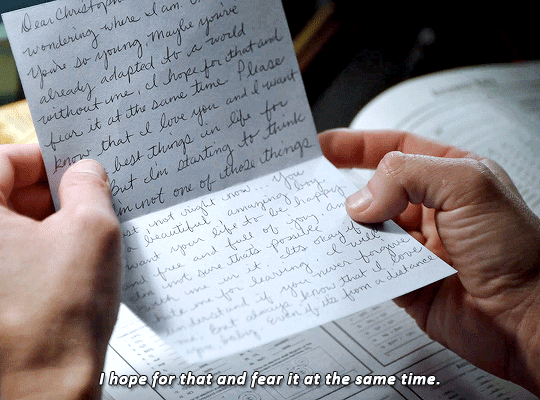 Dear Christopher
wondering where I am.
You're so young. Maybe you've
already adapted to a world
without me. I hope for that and
fear it at the same time. Please
know that I love you and I want
best things in life for
But I'm starting to think
I'm not one of those things
not right now... You
a beautiful, amazing boy
want your life to be happy
and free and full of joy and
I'm not sure that's possible
with me in it. It's okay if
hate me for leaving. I will
understand if you never forgive
me. But always know that I love
you baby. Even if it's from a distance
I hope for that and fear it at the same time.